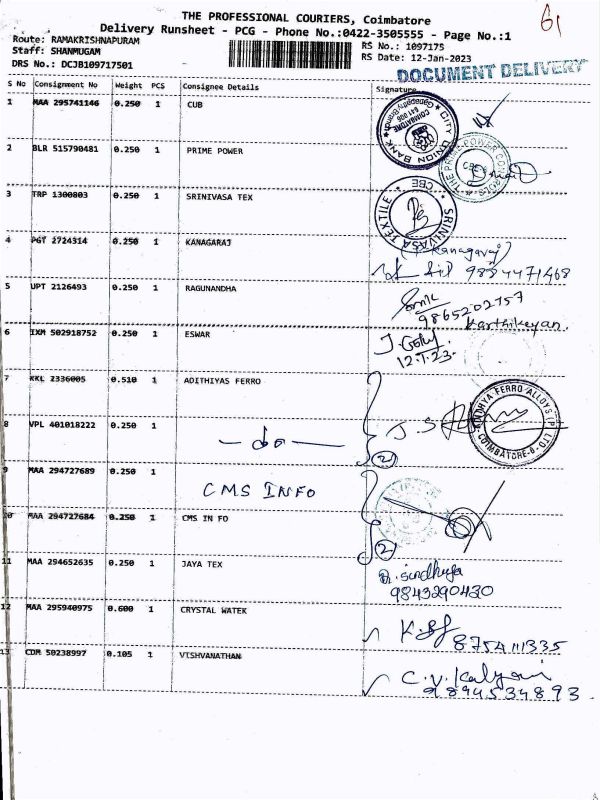 61
THE PROFESSIONAL COURIERS, Coimbatore
Delivery Runsheet - PCG - Phone No.:0422-3505555 - Page No.:1
Route: RAMAKRISHNAPURAM
RS No.: 1097175
Staff: SHANMUGAM
RS Date: 12-Jan-2023
DRS No.: DCJB109717501
DOCUMENT DELIVERY
S No Consignment No Weight PCS Consignee Details Signature
1 MAA 295741146 0.250 1 CUB
CITY UNION BANK
COIMBATORE
2 BLR 515790481 0.250 1 PRIME POWER
THE PRIME POWER CONTROLS
3 TRP 1300803 0.250 1 SRINIVASA TEX
SRINIVASA TEXTILE CBE
4 PGT 2724314 0.250 1 KANAGARAJ
Kanagaraj
9884471468
5 UPT 2126493 0.250 1 RAGUNANDHA
9865202757
Karthikeyan.
6 IXM 502918752 0.250 1 ESWAR
12.1.23.
7 KKL 2336005 0.510 1 ADITHIYAS FERRO
FERRO ALLOYS (P) LTD. COIMBATORE-6.
8 VPL 401018222 0.250 1 — do —
2
9 MAA 294727689 0.250 1 CMS INFO
10 MAA 294727684 0.250 1 CMS IN FO
2
11 MAA 294652635 0.250 1 JAYA TEX
sindhuja
9843290430
12 MAA 295940975 0.600 1 CRYSTAL WATEK
8754111335
13 CDM 50238997 0.105 1 VISHVANATHAN
C.V. Kalyani
9894534893